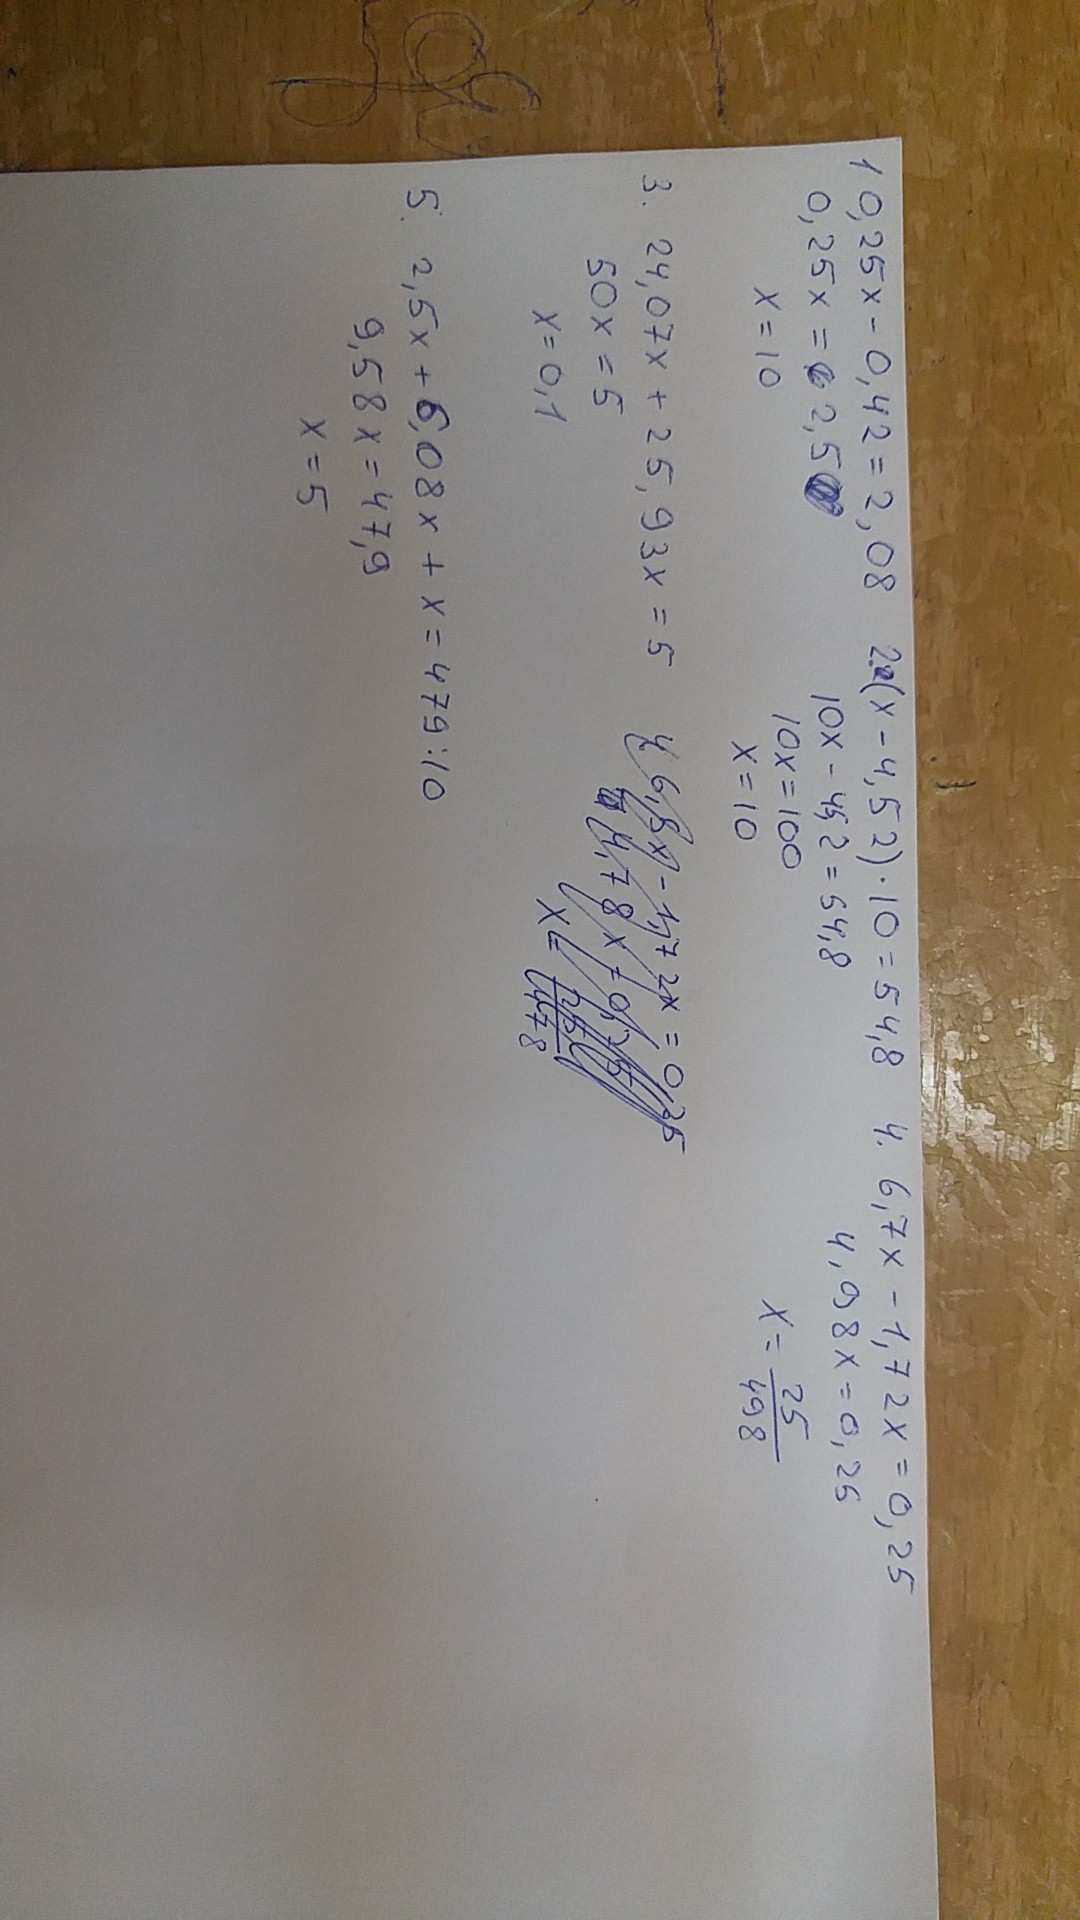 1 0,25x - 0,42 = 2,08
0,25x = 2,5
x = 10
2. (x - 4,52) · 10 = 54,8
10x - 45,2 = 54,8
10x = 100
x = 10
4. 6,7x - 1,72x = 0,25
4,98x = 0,25
x = 25/498
3. 24,07x + 25,93x = 5
50x = 5
x = 0,1
5. 2,5x + 6,08x + x = 479:10
9,58x = 47,9
x = 5